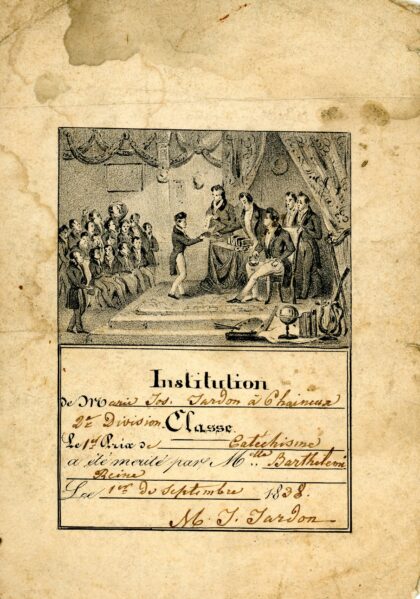 Institution
de Marie Jos. Jardon à Chaineux
2e Division. Classe
Le 1er Prix de Catéchisme
a été mérité par Melle Barthelemi
Reine
Le 1er de Septembre 1838.
M. J. Jardon